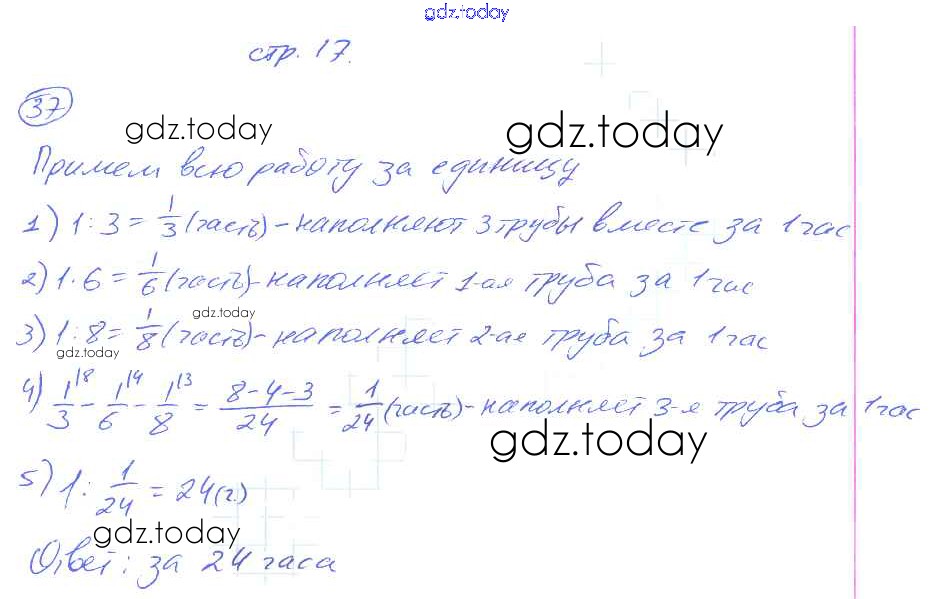 gdz.today
стр. 17.
37
gdz.today gdz.today
Примем всю работу за единицу
1) 1 : 3 = 1/3 (часть) - наполняют 3 трубы вместе за 1 час
2) 1 · 6 = 1/6 (часть) - наполняет 1-ая труба за 1 час
gdz.today
3) 1 : 8 = 1/8 (часть) - наполняет 2-ае труба за 1 час
gdz.today
4) 1/3 |8 - 1/6 |4 - 1/8 |3 = (8-4-3)/24 = 1/24 (часть) - наполняет 3-я труба за 1 час
gdz.today
5) 1 : 1/24 = 24 (ч.)
gdz.today
Ответ: за 24 часа